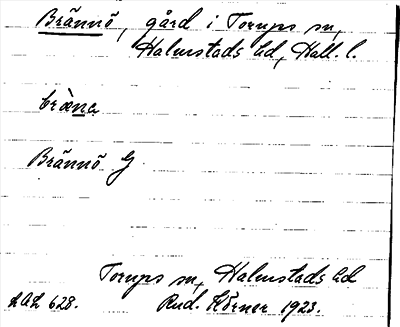 Brännö, gård i Torups sn,
Halmstads hd, Hall. l.
bràna
Brännö G
Torups sn, Halmstads hd
LAL 628. Rud. Körner 1923.